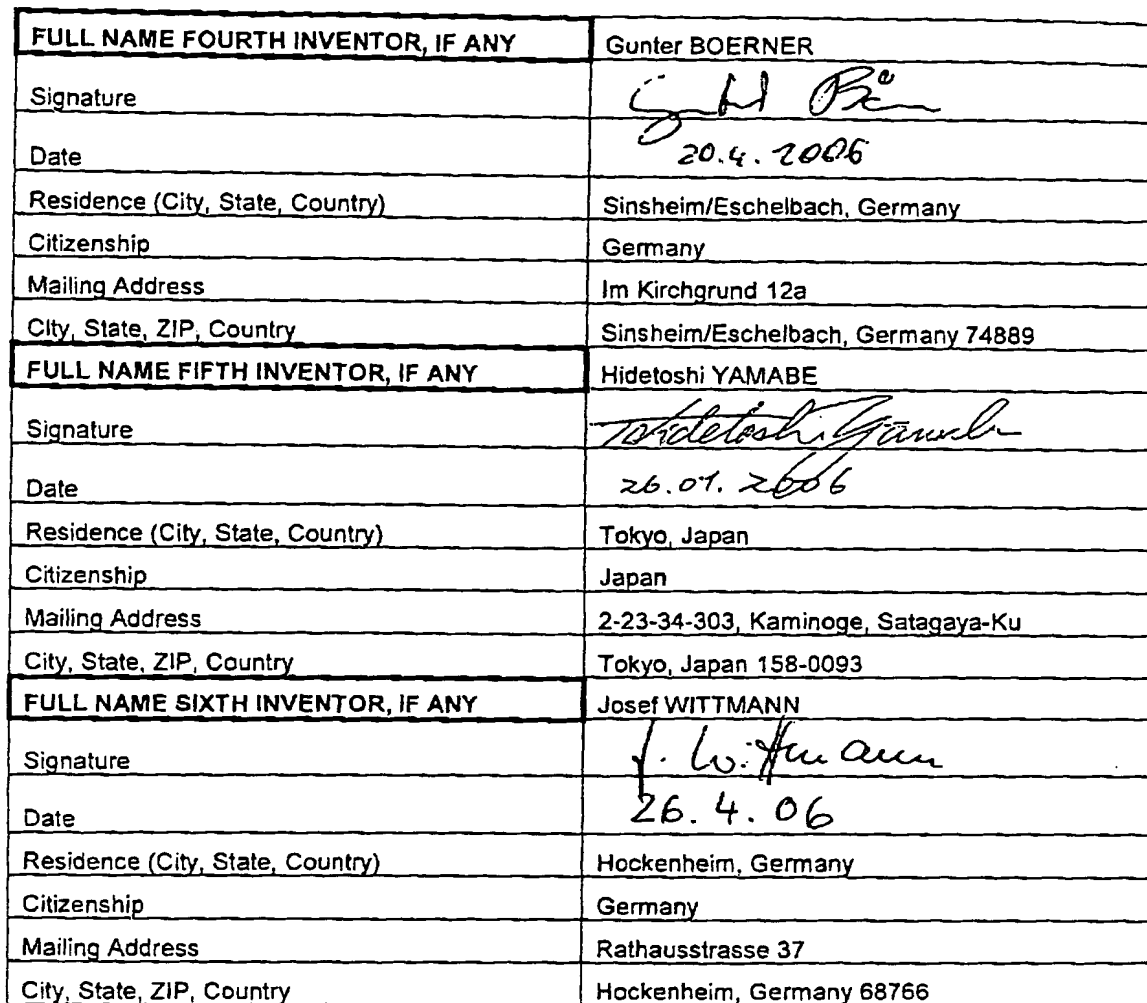 FULL NAME FOURTH INVENTOR, IF ANY Gunter BOERNER
Signature
Date 20.4.2006
Residence (City, State, Country) Sinsheim/Eschelbach, Germany
Citizenship Germany
Mailing Address Im Kirchgrund 12a
City, State, ZIP, Country Sinsheim/Eschelbach, Germany 74889
FULL NAME FIFTH INVENTOR, IF ANY Hidetoshi YAMABE
Signature Hidetoshi Yamabe
Date 26.07.2006
Residence (City, State, Country) Tokyo, Japan
Citizenship Japan
Mailing Address 2-23-34-303, Kaminoge, Satagaya-Ku
City, State, ZIP, Country Tokyo, Japan 158-0093
FULL NAME SIXTH INVENTOR, IF ANY Josef WITTMANN
Signature J. Wittmann
Date 26.4.06
Residence (City, State, Country) Hockenheim, Germany
Citizenship Germany
Mailing Address Rathausstrasse 37
City, State, ZIP, Country Hockenheim, Germany 68766